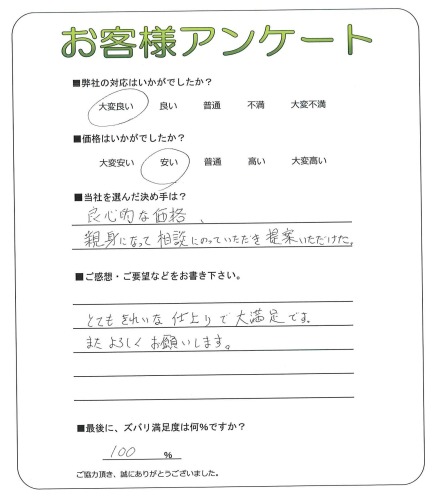 お客様アンケート
■弊社の対応はいかがでしたか？
大変良い 良い 普通 不満 大変不満
■価格はいかがでしたか？
大変安い 安い 普通 高い 大変高い
■当社を選んだ決め手は？
良心的な価格、
親身になって相談にのっていただき提案いただけた。
■ご感想・ご要望などをお書き下さい。
とてもきれいな仕上りで大満足です。
またよろしくお願いします。
■最後に、ズバリ満足度は何%ですか？
100 %
ご協力頂き、誠にありがとうございました。